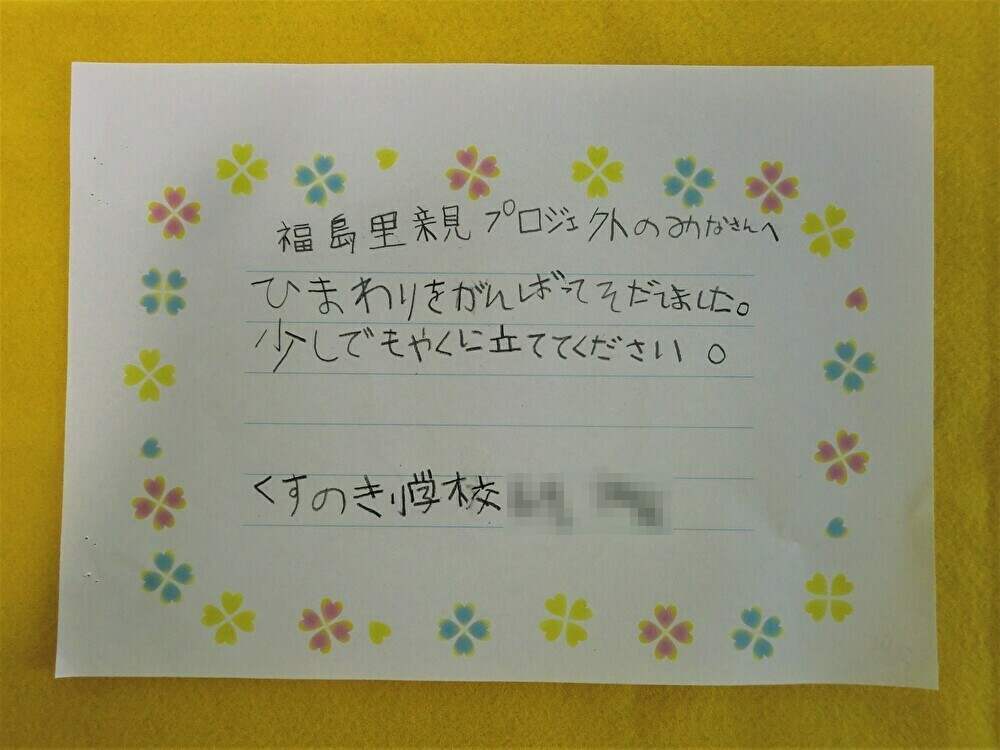 福島里親プロジェクトのみなさんへ
ひまわりをがんばってそだてました。
少しでもやくに立ててください。
くすのき小学校